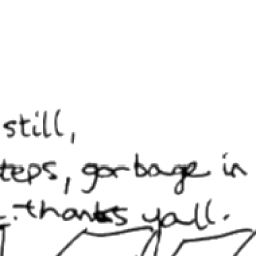 still,
teps, garbage in
thanks yall.